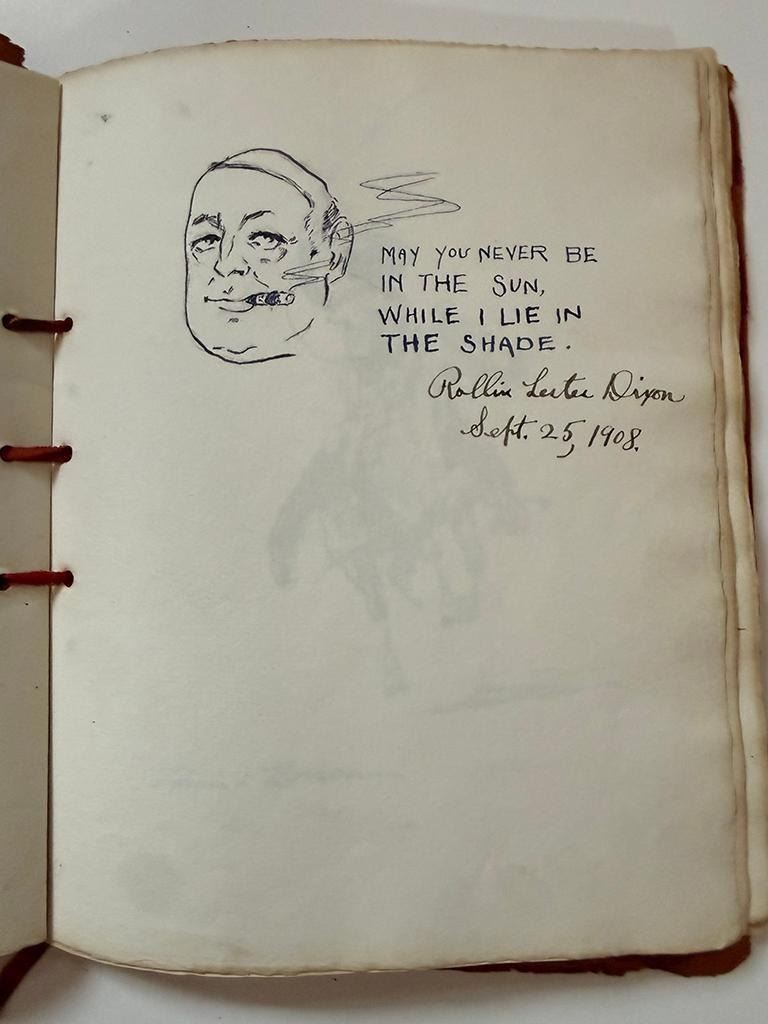 MAY YOU NEVER BE
IN THE SUN,
WHILE I LIE IN
THE SHADE.
Rollin Lester Dixon
Sept. 25, 1908.